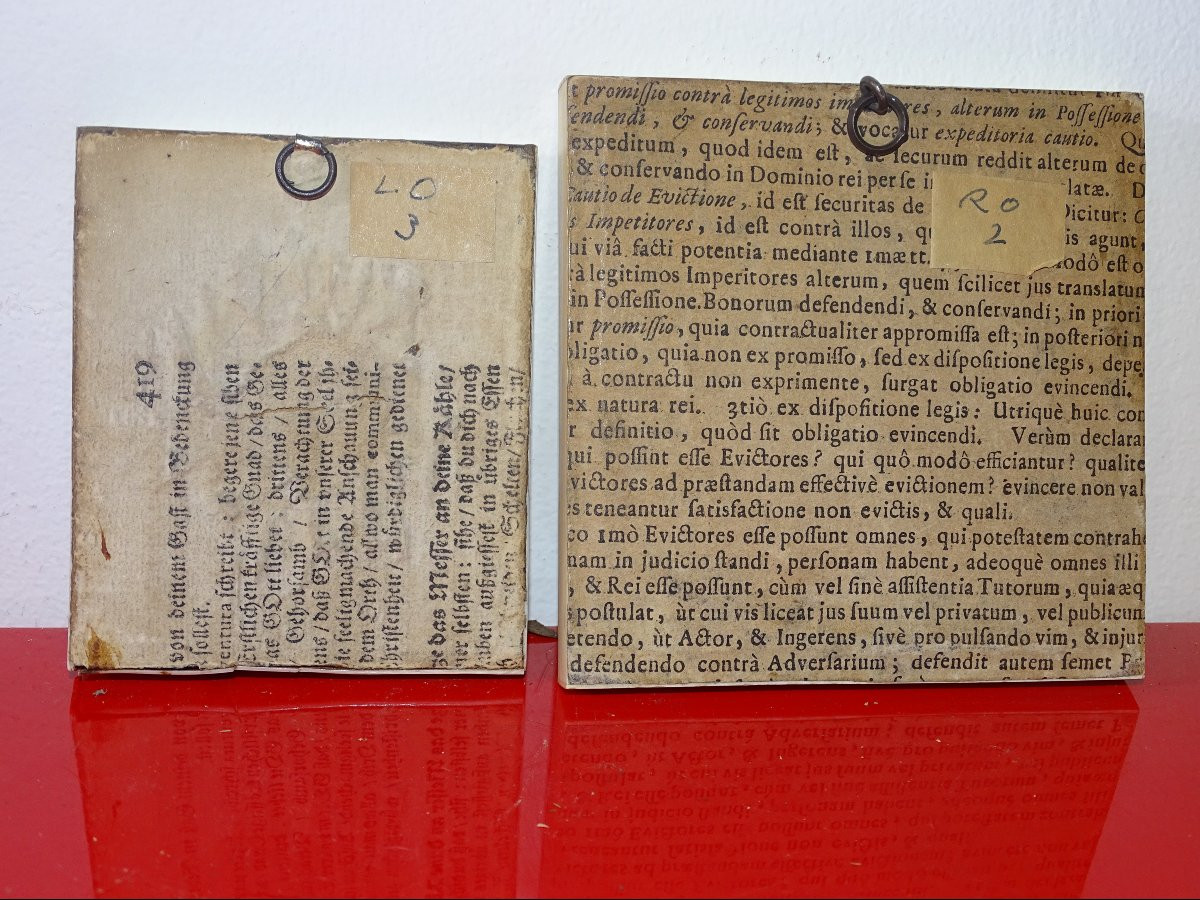 LO
3
419
von deinem Gast in Bedenckung
sollest.
schreibt: begere jene sichen
kräfftige Gnad / das Ge-
GOtt lieber: drittens / alles
Gehorsamb / Verachtung der
daß GOtt in unserer Seel ih-
seeligmachende Anschauung sei-
dem Orth / alwo man communi-
würdiglichen gedienet
das Messer an deine Kähle /
selbsten: sihe / daß du dich nach
außgiessest in übriges Essen
RO
2
promiſſio contrà legitimos alterum in Poſſeſſione
endendi, & conſervandi; & vocatur expeditoria cautio.
expeditum, quod idem eſt, ac ſecurum reddit alterum de
& conſervando in Dominio rei per ſe latæ.
Cautio de Evictione, id eſt ſecuritas de Dicitur:
Impetitores, id eſt contrà illos, is agunt,
ui viâ facti potentia mediante 1mætt. modò eſt
à legitimos Imperitores alterum, quem ſcilicet jus translatum
in Poſſeſſione Bonorum defendendi, & conſervandi; in priori
promiſſio, quia contractualiter appromiſſa eſt; in poſteriori
bligatio, quia non ex promiſſo, ſed ex diſpoſitione legis, depe
à contractu non exprimente, ſurgat obligatio evincendi.
ex natura rei. 3tiò ex diſpoſitione legis: Utriquè huic con
definitio, quòd ſit obligatio evincendi. Verùm declara
qui poſſint eſſe Evictores? qui quô modô efficiantur? qualite
victores ad præſtandam effectivè evictionem? evincere non val
teneantur ſatisfactione non evictis, & quali.
co 1mò Evictores eſſe poſſunt omnes, qui poteſtatem contrahe
nam in judicio ſtandi, perſonam habent, adeoquè omnes illi
, & Rei eſſe poſſunt, cùm vel ſinè aſſiſtentia Tutorum, quia æq
poſtulat, ùt cui vis liceat jus ſuum vel privatum, vel publicum
etendo, ùt Actor, & Ingerens, ſivè pro pulſando vim, & injur
defendendo contrà Adverſarium; defendit autem ſemet